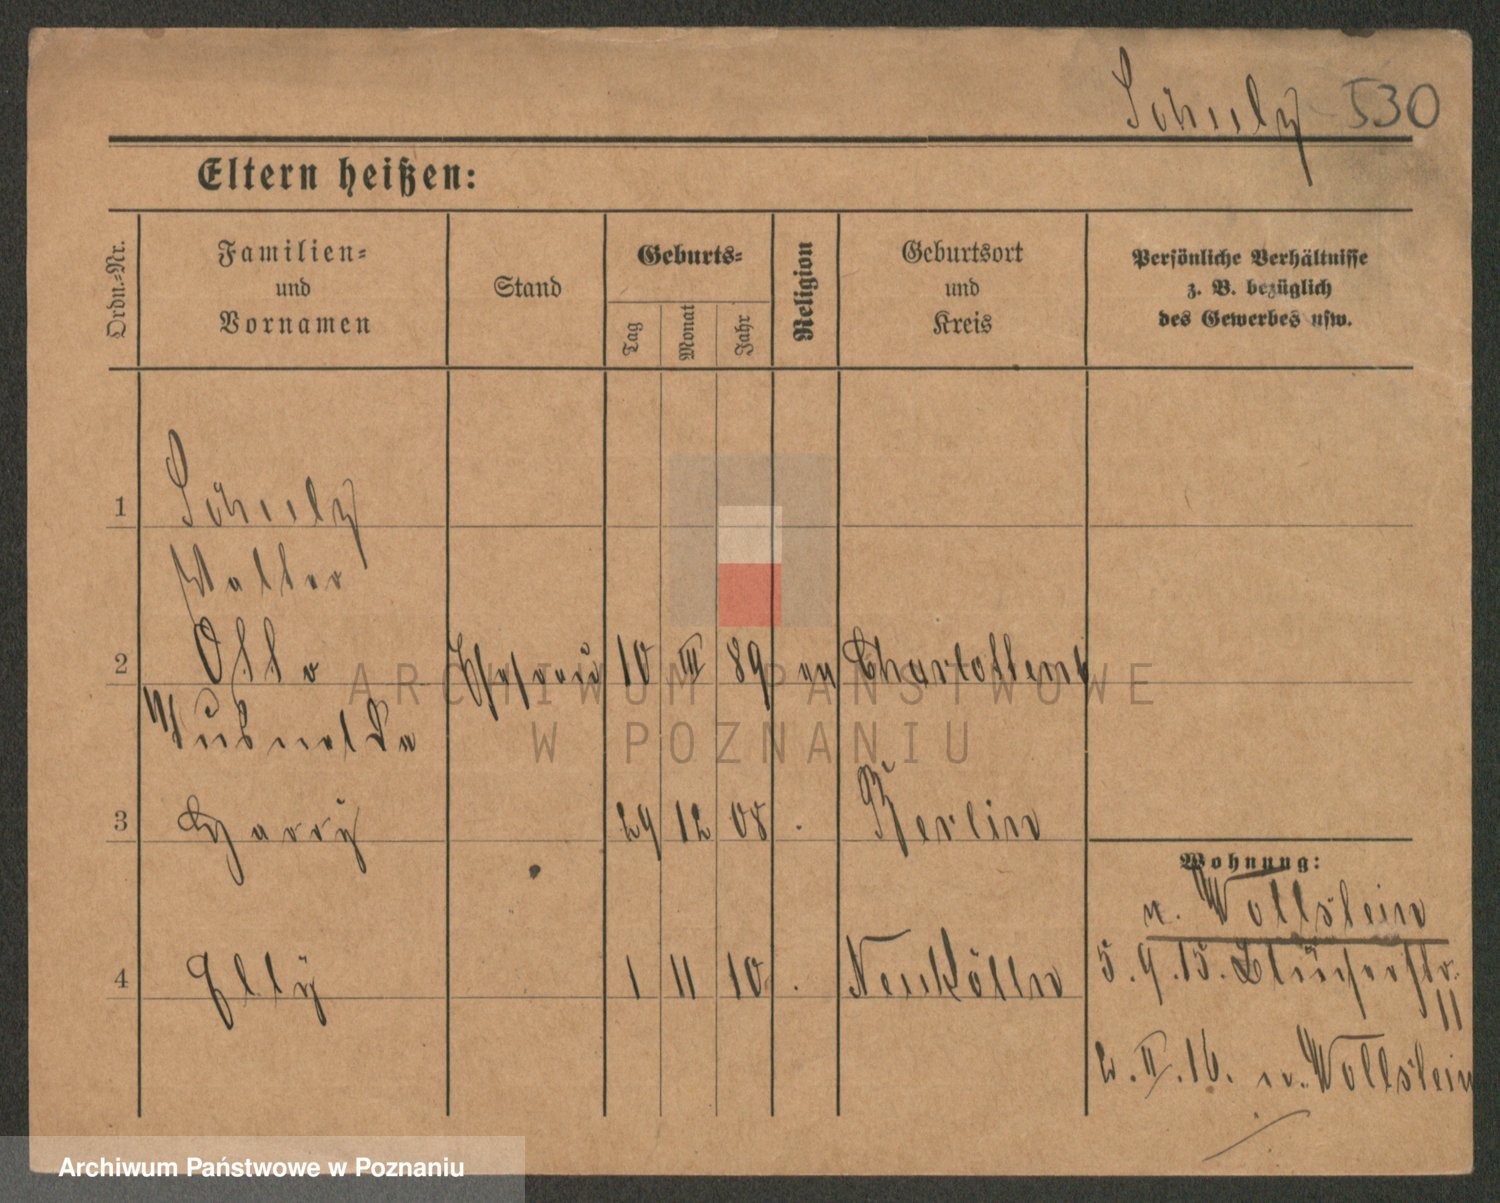 Schulz 530
Eltern heißen:
Ordn.-Nr.
Familien-
und
Vornamen
Stand
Geburts-
Tag
Monat
Jahr
Religion
Geburtsort
und
Kreis
Persönliche Verhältnisse
z. B. bezüglich
des Gewerbes usw.
1 Schulz
Walter
2 Otto Ehefrau 10 III 89 ev Charlottenb
3 Harry 29 12 08 . Berlin
Wohnung:
n. Wollstein
4 Elly 1 11 10 . Neukölln
5.9.15. Blücherstr.
11
2.II.16. n. Wollstein
ARCHIWUM PAŃSTWOWE
W POZNANIU
Archiwum Państwowe w Poznaniu